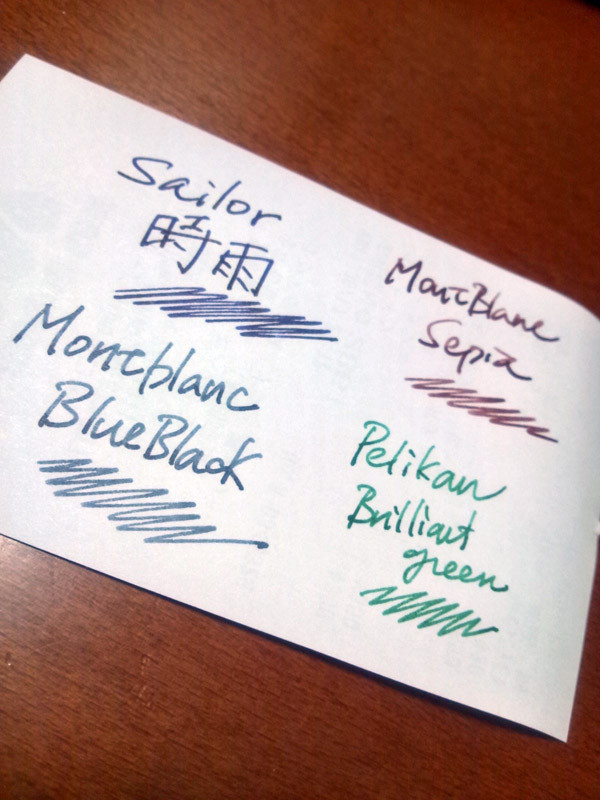 Sailor
時雨
Montblanc
BlueBlack
MontBlanc
Sepia
Pelikan
Brilliant
green